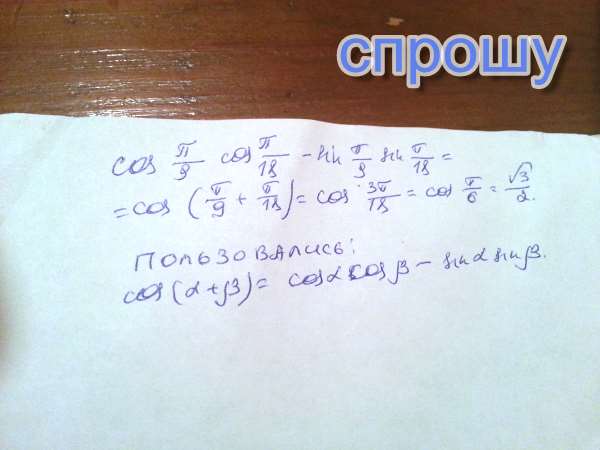 спрошу
cos π/9 cos π/18 - sin π/9 sin π/18 =
= cos (π/9 + π/18) = cos 3π/18 = cos π/6 = √3/2.
ПОЛЬЗОВАЛИСЬ:
cos(α+β) = cosα cosβ - sinα sinβ.